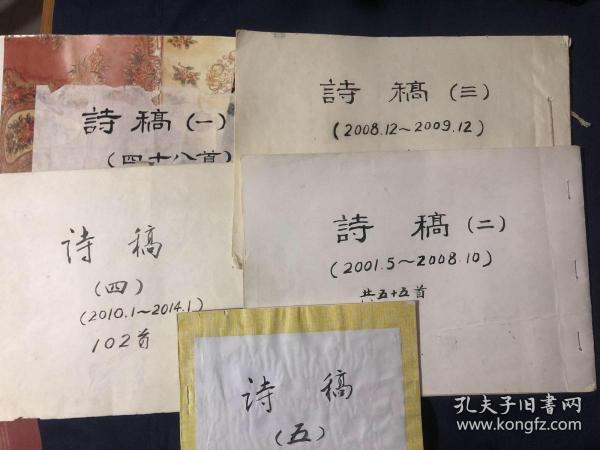 詩稿(一)
(四十八首)
詩稿(三)
(2008.12~2009.12)
诗稿
(四)
(2010.1~2014.1)
102首
詩稿(二)
(2001.5~2008.10)
共五十五首
诗稿
(五)
孔夫子旧書网
www.kongfz.com